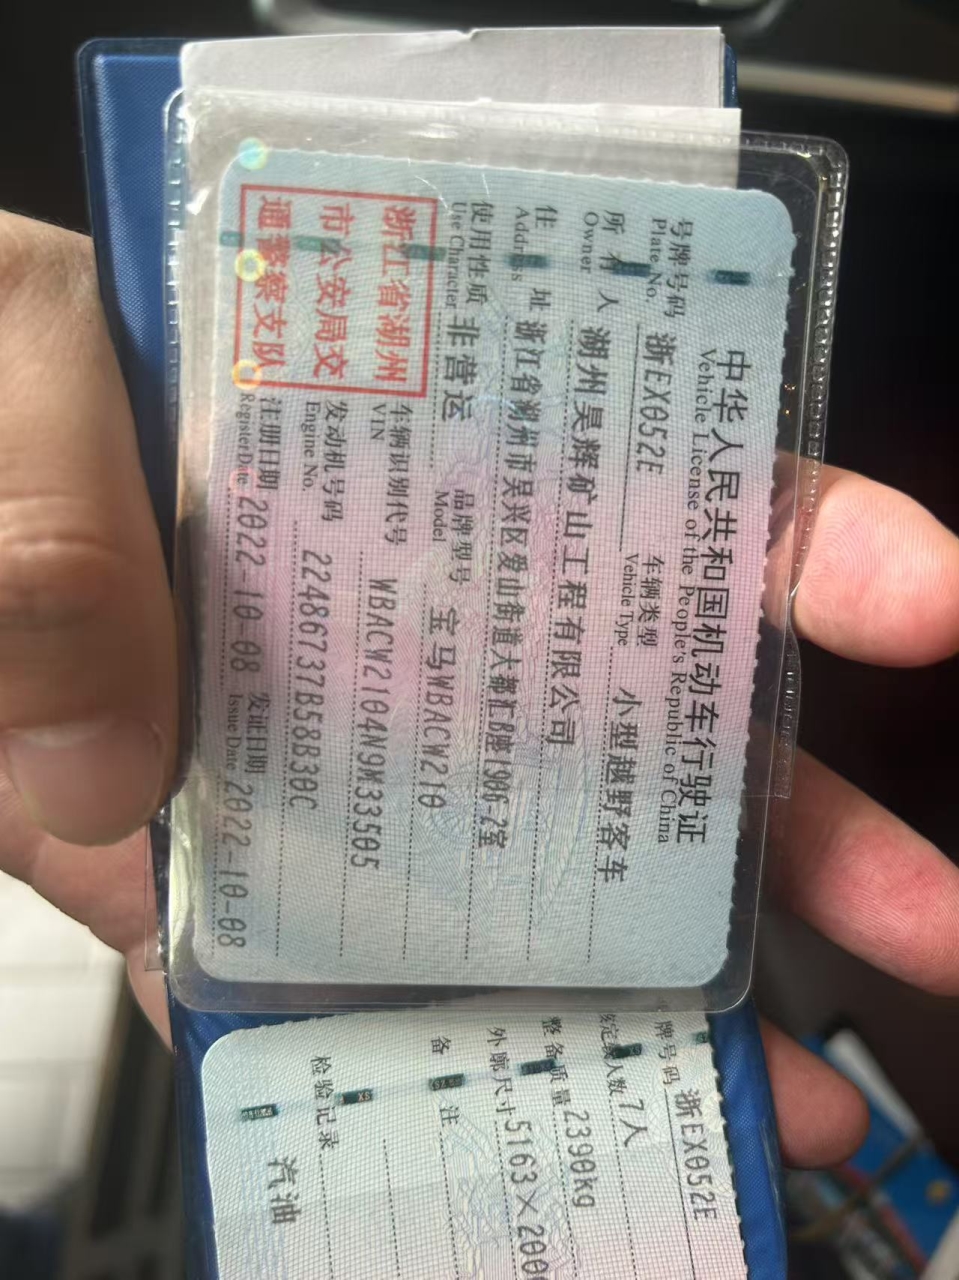 中华人民共和国机动车行驶证
Vehicle License of the People's Republic of China
号牌号码 浙EX052E 车辆类型 小型越野客车
Plate No. Vehicle Type
所有人 湖州昊辉矿山工程有限公司
Owner
住址 浙江省湖州市吴兴区爱山街道大都汇B座1906-2室
Address
使用性质 非营运 品牌型号 宝马WBACW210
Use Character Model
浙江省湖州
市公安局交
通警察支队
车辆识别代号 WBACW2104N9M33505
VIN
发动机号码 22486737B58B30C
Engine No.
注册日期 2022-10-08 发证日期 2022-10-08
Register Date Issue Date
牌号码 浙EX052E
核定载人数 7人
整备质量 2390kg
外廓尺寸 5163×200
备注
检验记录
汽油